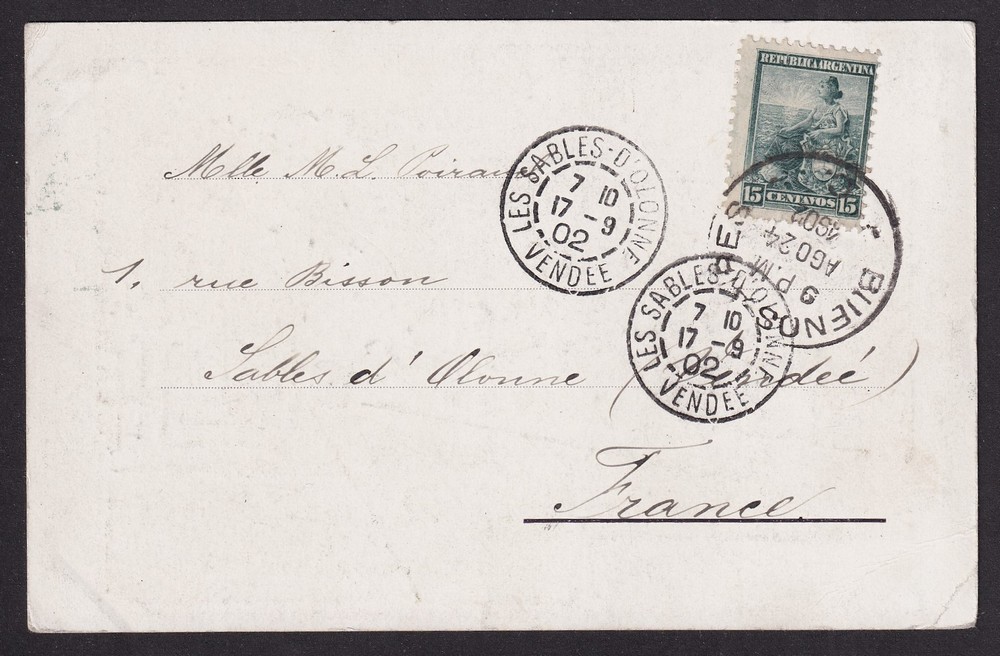 REPUBLICA ARGENTINA
15 CENTAVOS 15
BUENOS
AGO 24
P.M.
LES SABLES-D'OLONNE
7 10
17 - 9
02
VENDEE
LES SABLES-D'OLONNE
7 10
17 - 9
02
VENDEE
Mlle M. L.
1, rue Bisson
Sables d'Olonne (Vendée)
France